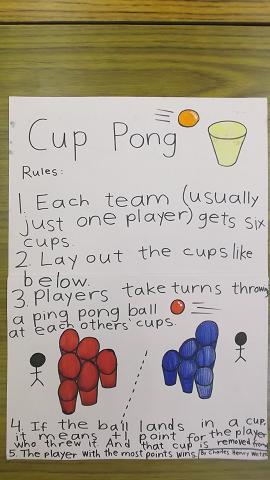 Cup Pong
Rules:
1. Each team (usually
just one player) gets six
cups.
2. Lay out the cups like
below.
3. Players take turns throwing
a ping pong ball
at each others cups.
4. If the ball lands in a cup,
it means +1 point for the player
who threw it. And that cup is removed from
5. The player with the most points wins.
By Charles Henry